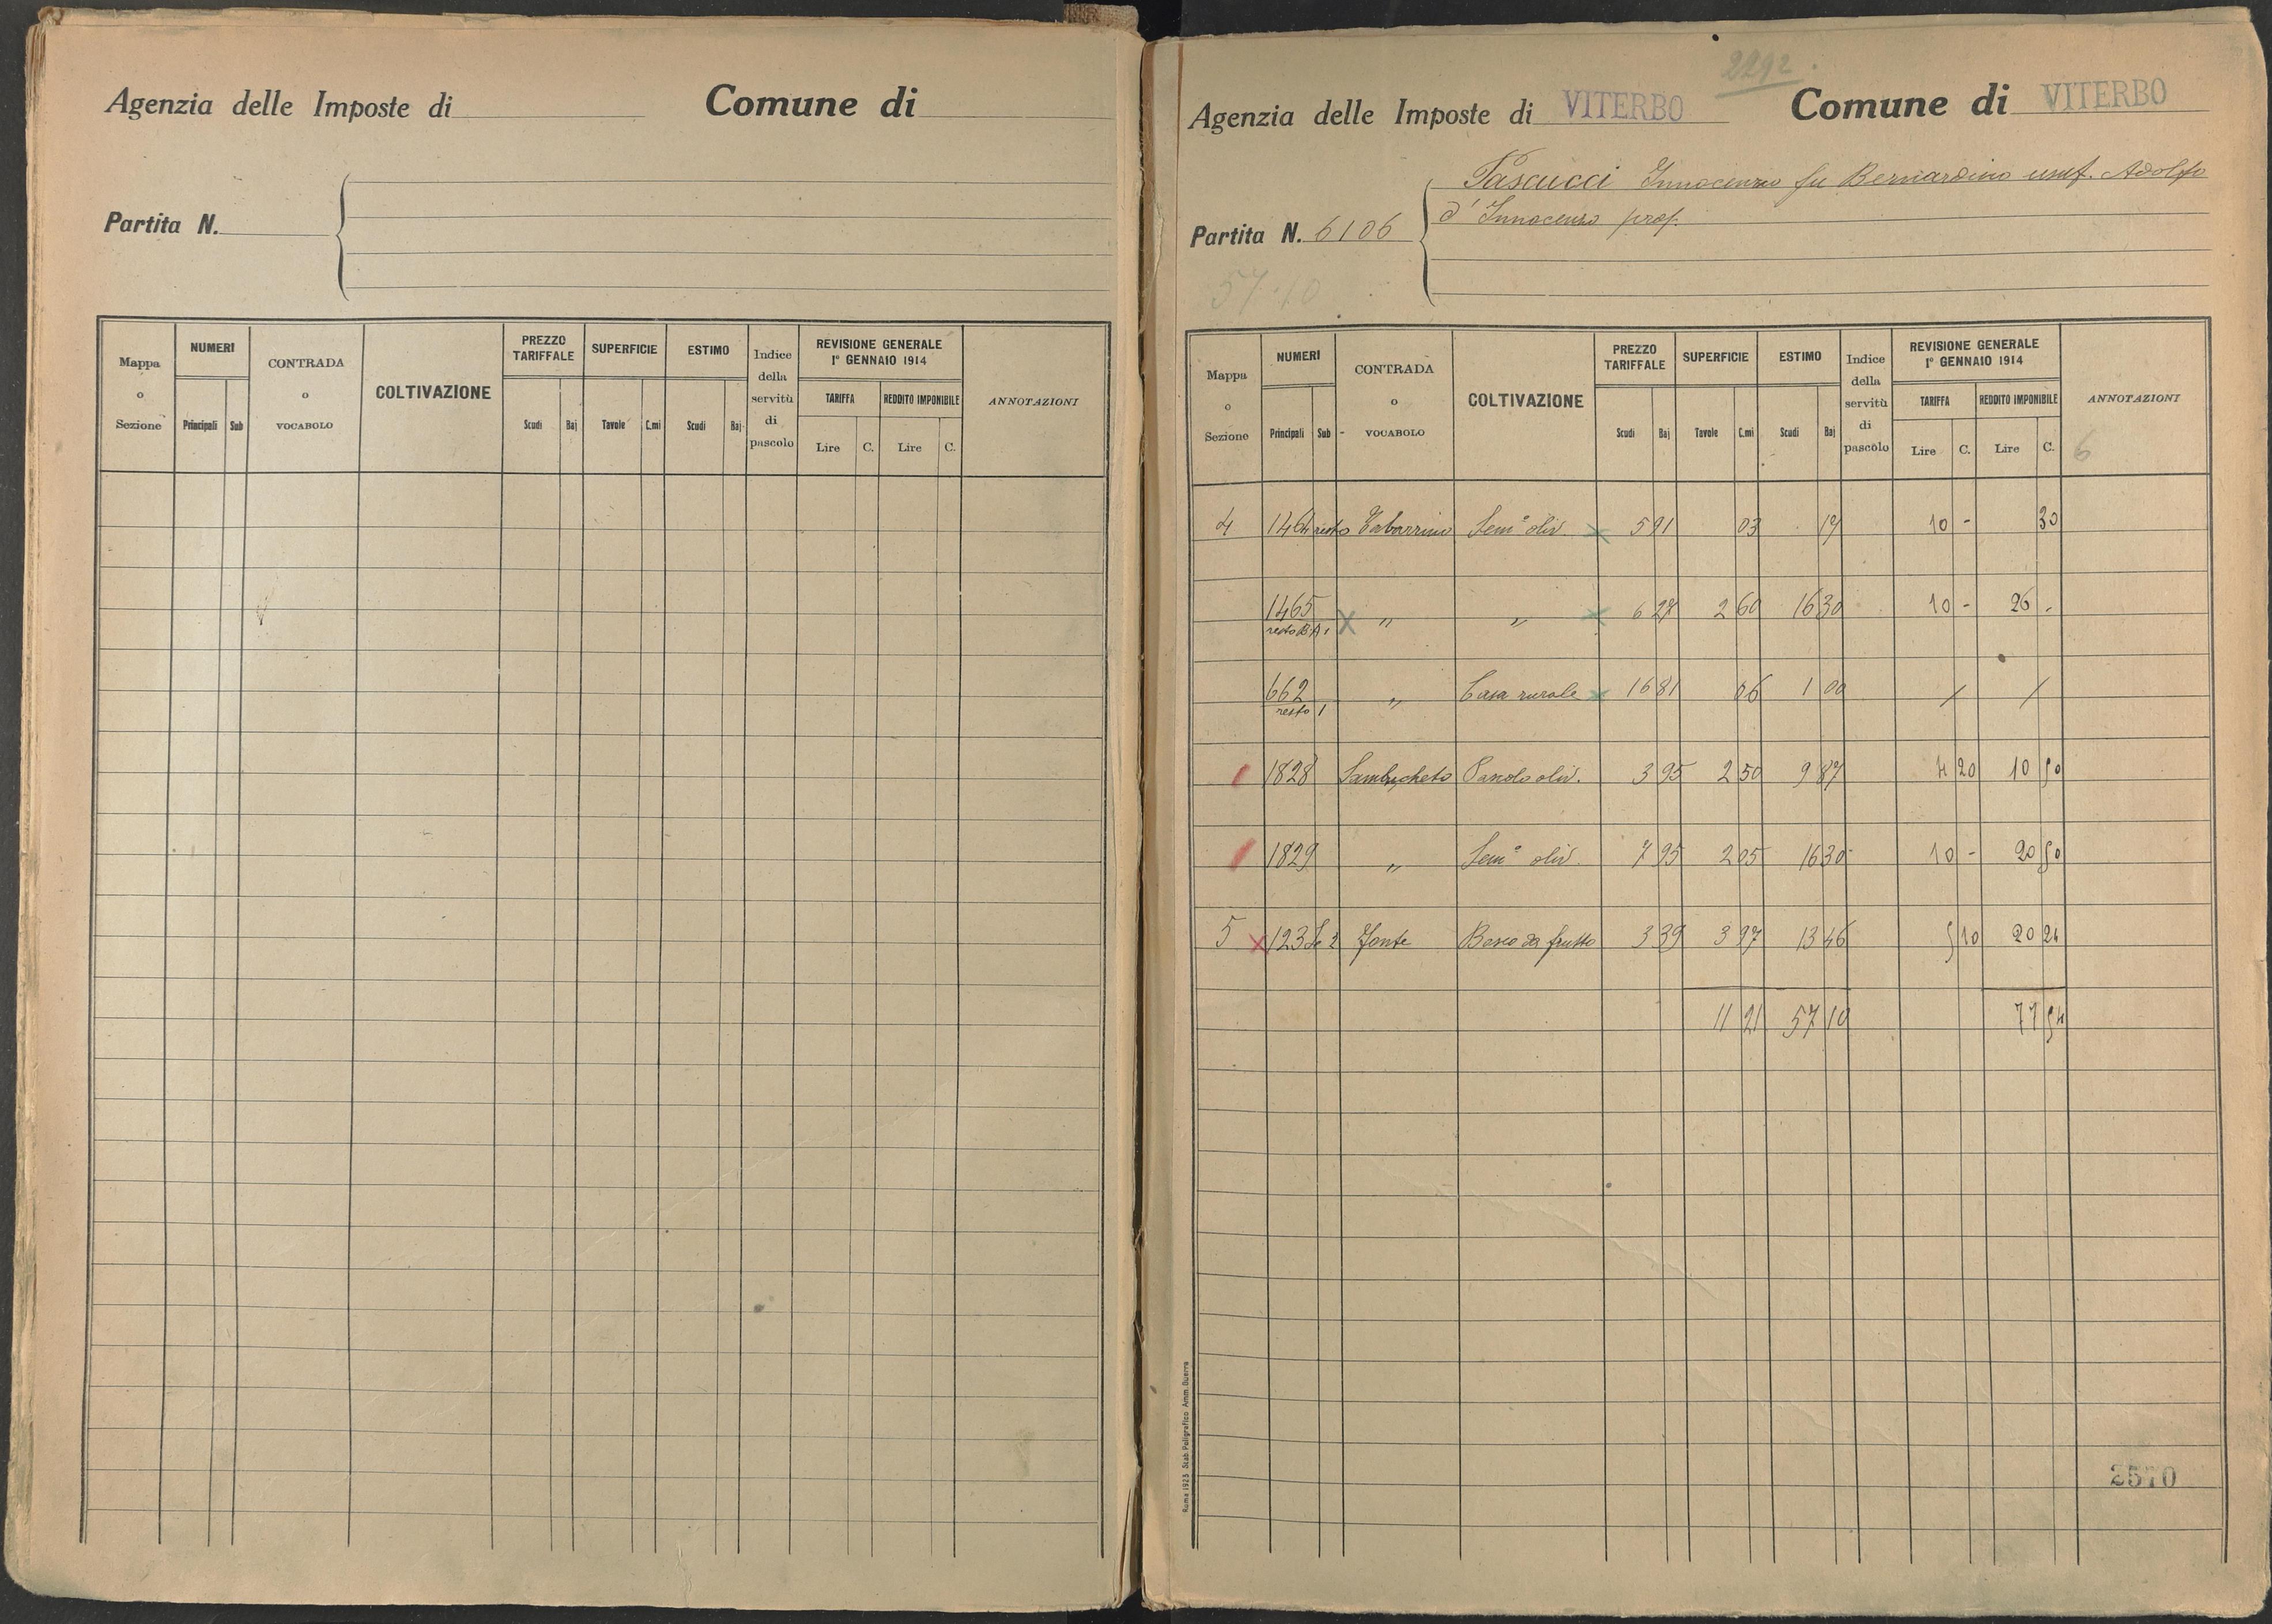 Agenzia delle Imposte di
Comune di
Partita N.
Mappa o Sezione
NUMERI
Principali Sub
CONTRADA o VOCABOLO
COLTIVAZIONE
PREZZO TARIFFALE
Scudi Baj
SUPERFICIE
Tavole C.mi
ESTIMO
Scudi Baj
Indice della servitù di pascolo
REVISIONE GENERALE 1° GENNAIO 1914
TARIFFA
Lire C.
REDDITO IMPONIBILE
Lire C.
ANNOTAZIONI
2292
Agenzia delle Imposte di VITERBO
Comune di VITERBO
Pascucci Innocenzo fu Bernardino usuf. Adolfo
d'Innocenzo prop.
Partita N. 6106
57.10
Mappa o Sezione
NUMERI
Principali Sub
CONTRADA o VOCABOLO
COLTIVAZIONE
PREZZO TARIFFALE
Scudi Baj
SUPERFICIE
Tavole C.mi
ESTIMO
Scudi Baj
Indice della servitù di pascolo
REVISIONE GENERALE 1° GENNAIO 1914
TARIFFA
Lire C.
REDDITO IMPONIBILE
Lire C.
ANNOTAZIONI
6
4 1464 resto Tabarrino Sem° oliv. 5 91 03 17 10 - 30
1465 resto B.A 1 " " 6 27 2 60 16 30 10 - 26 -
662 resto 1 " Casa rurale 16 81 06 1 00 / /
1828 Sambucheto Pascolo oliv. 3 95 2 50 9 87 4 20 10 50
1829 " Sem° oliv. 7 95 2 05 16 30 10 - 20 50
5 123 2 Fonte Bosco da frutto 3 39 3 97 13 46 5 10 20 24
11 21 57 10 77 54
Roma 1923 Stab. Poligrafico Amm. Guerra
2570